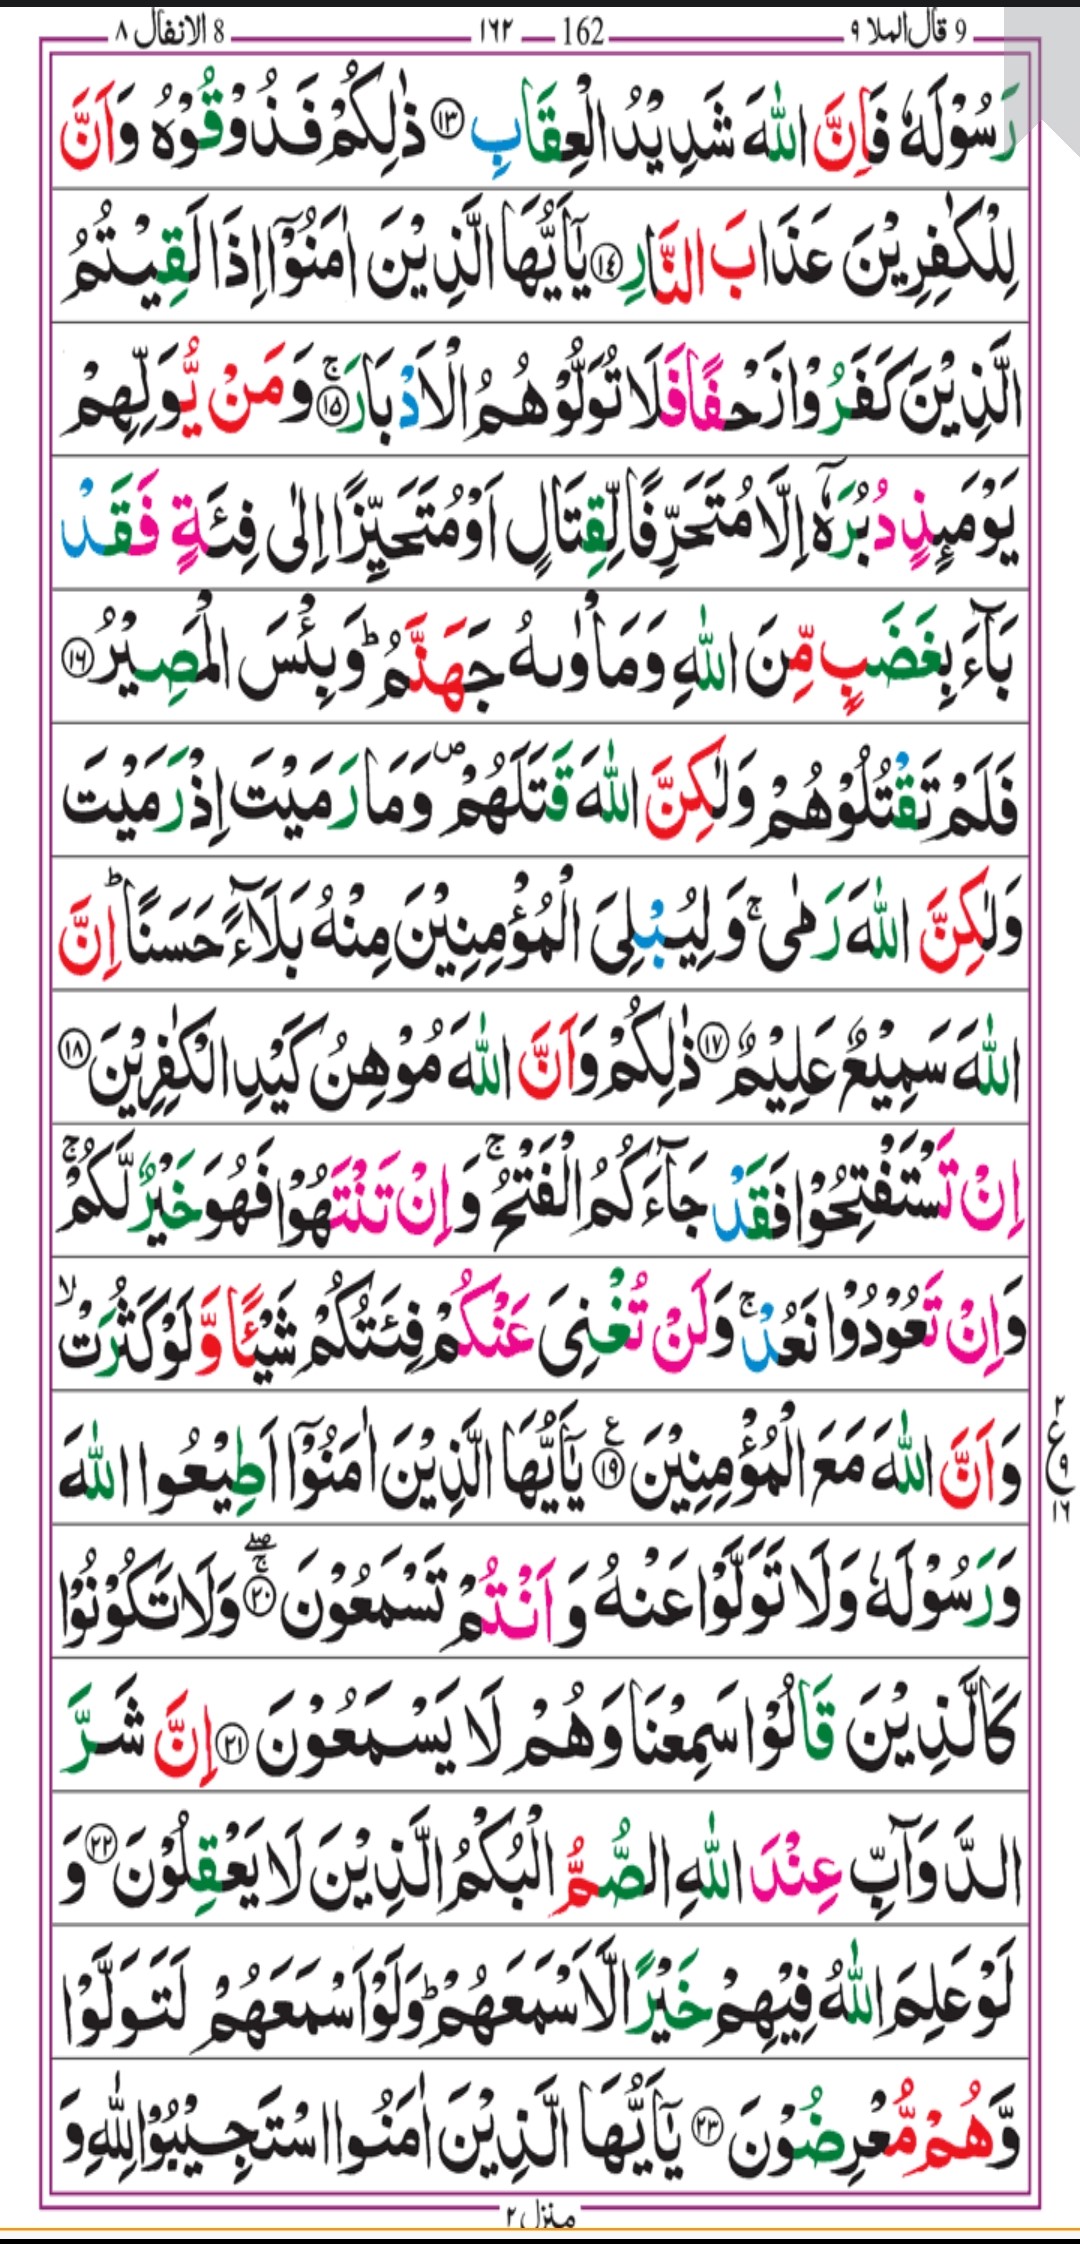 9 قال الملا ۹ 162 ۱۶۲ 8 الانفال ۸
رَسُوْلَهٗ فَاِنَّ اللّٰهَ شَدِيْدُ الْعِقَابِ ۝۱۳ ذٰلِكُمْ فَذُوْقُوْهُ وَاَنَّ
لِلْكٰفِرِيْنَ عَذَابَ النَّارِ ۝۱۴ يٰۤاَيُّهَا الَّذِيْنَ اٰمَنُوْۤا اِذَا لَقِيْتُمُ
الَّذِيْنَ كَفَرُوْا زَحْفًا فَلَا تُوَلُّوْهُمُ الْاَدْبَارَ ۝۱۵ۚ وَمَنْ يُّوَلِّهِمْ
يَوْمَىِٕذٍ دُبُرَهٗۤ اِلَّا مُتَحَرِّفًا لِّقِتَالٍ اَوْ مُتَحَيِّزًا اِلٰى فِئَةٍ فَقَدْ
بَآءَ بِغَضَبٍ مِّنَ اللّٰهِ وَمَاْوٰىهُ جَهَنَّمُ ؕ وَبِئْسَ الْمَصِيْرُ ۝۱۶
فَلَمْ تَقْتُلُوْهُمْ وَلٰكِنَّ اللّٰهَ قَتَلَهُمْ ۪ وَمَا رَمَيْتَ اِذْ رَمَيْتَ
وَلٰكِنَّ اللّٰهَ رَمٰى ۚ وَلِيُبْلِىَ الْمُؤْمِنِيْنَ مِنْهُ بَلَآءً حَسَنًا ؕ اِنَّ
اللّٰهَ سَمِيْعٌ عَلِيْمٌ ۝۱۷ ذٰلِكُمْ وَاَنَّ اللّٰهَ مُوْهِنُ كَيْدِ الْكٰفِرِيْنَ ۝۱۸
اِنْ تَسْتَفْتِحُوْا فَقَدْ جَآءَكُمُ الْفَتْحُ ۚ وَاِنْ تَنْتَهُوْا فَهُوَ خَيْرٌ لَّكُمْ ۚ
وَاِنْ تَعُوْدُوْا نَعُدْ ۚ وَلَنْ تُغْنِىَ عَنْكُمْ فِئَتُكُمْ شَيْـًٔا وَّلَوْ كَثُرَتْ ۙ
وَاَنَّ اللّٰهَ مَعَ الْمُؤْمِنِيْنَ ۝۱۹ ع يٰۤاَيُّهَا الَّذِيْنَ اٰمَنُوْۤا اَطِيْعُوا اللّٰهَ
۲ ع ۹ ۱۶
وَرَسُوْلَهٗ وَلَا تَوَلَّوْا عَنْهُ وَاَنْتُمْ تَسْمَعُوْنَ ۝۲۰ۚۖ وَلَا تَكُوْنُوْا
كَالَّذِيْنَ قَالُوْا سَمِعْنَا وَهُمْ لَا يَسْمَعُوْنَ ۝۲۱ اِنَّ شَرَّ
الدَّوَآبِّ عِنْدَ اللّٰهِ الصُّمُّ الْبُكْمُ الَّذِيْنَ لَا يَعْقِلُوْنَ ۝۲۲ وَ
لَوْ عَلِمَ اللّٰهُ فِيْهِمْ خَيْرًا لَّاَسْمَعَهُمْ ؕ وَلَوْ اَسْمَعَهُمْ لَتَوَلَّوْا
وَّهُمْ مُّعْرِضُوْنَ ۝۲۳ يٰۤاَيُّهَا الَّذِيْنَ اٰمَنُوا اسْتَجِيْبُوْا لِلّٰهِ وَ
منزل ۲